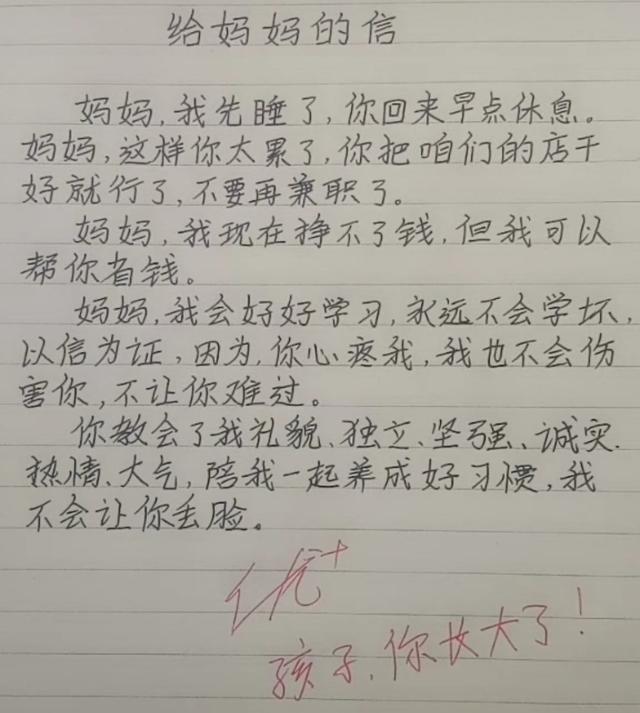 给妈妈的信
妈妈,我先睡了,你回来早点休息。
妈妈,这样你太累了,你把咱们的店干
好就行了,不要再兼职了。
妈妈,我现在挣不了钱,但我可以
帮你省钱。
妈妈,我会好好学习,永远不会学坏,
以信为证,因为,你心疼我,我也不会伤
害你,不让你难过。
你教会了我礼貌、独立、坚强、诚实、
热情、大气,陪我一起养成好习惯,我
不会让你丢脸。
优+
孩子,你长大了!